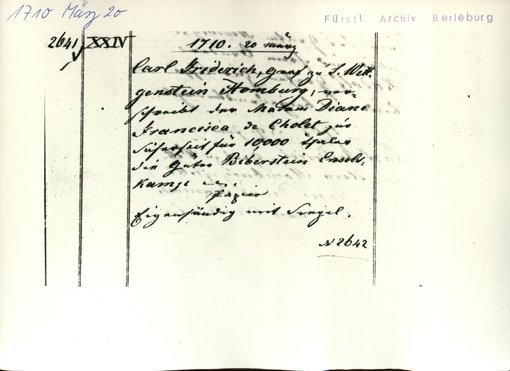 1710 März 20
Fürstl. Archiv Berleburg
2641 XXIV
1710. 20 März
Carl Friderich, Graf zu S. Witt-
genstein Homburg, ver-
schreibt der Madam Diana
Francisca de Cholet zur
Sicherheit für 10,000 Thaler
die Güter Biberstein
Papier
Eigenhändig mit Siegel.
N 2642